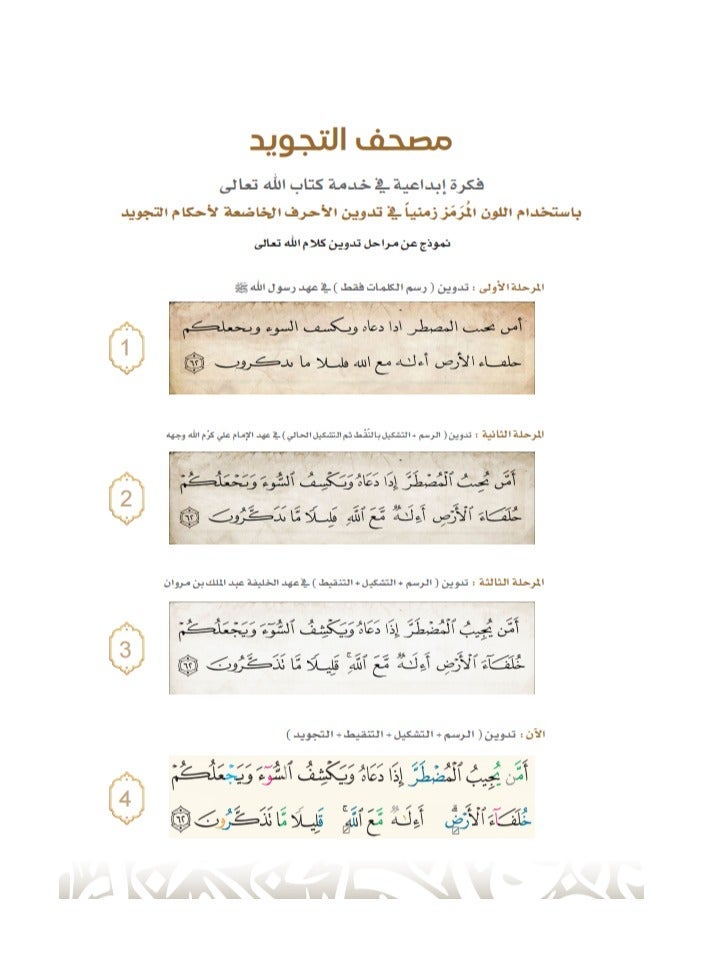 مصحف التجويد
فكرة إبداعية في خدمة كتاب الله تعالى
باستخدام اللون المُرَمَز زمنياً في تدوين الأحرف الخاضعة لأحكام التجويد
نموذج عن مراحل تدوين كلام الله تعالى
المرحلة الأولى : تدوين ( رسم الكلمات فقط ) في عهد رسول الله ﷺ
1
امں ٮحٮٮ المصطر ادا دعاه وٮكسڡ السوء وٮحعلكم
حلڡاء الأرص أءلـٰه مع الله ڡلٮلا ما ٮدكروں ٦٢
المرحلة الثانية : تدوين ( الرسم + التشكيل بالنُقَط ثم التشكيل الحالي ) في عهد الإمام علي كرّم الله وجهه
2
أَمَّں ٮُحِٮٮُ ٱلۡمُصۡطَرَّ إِدَا دَعَاهُ وَٮَكۡسِڡُ ٱلسُّوٓءَ وَٮَحۡعَلُكُمۡ
حُلَڡَآءَ ٱلۡأَرۡصِ أَءِلَـٰهٞ مَّعَ ٱللَّهِ ڡَلِٮلٗا مَّا ٮَدَكَّرُوںَ ٦٢
المرحلة الثالثة : تدوين ( الرسم + التشكيل + التنقيط ) في عهد الخليفة عبد الملك بن مروان
3
أَمَّن يُجِيبُ ٱلۡمُضۡطَرَّ إِذَا دَعَاهُ وَيَكۡشِفُ ٱلسُّوٓءَ وَيَجۡعَلُكُمۡ
خُلَفَآءَ ٱلۡأَرۡضِ أَءِلَـٰهٞ مَّعَ ٱللَّهِۚ قَلِيلٗا مَّا تَذَكَّرُونَ ٦٢
الآن : تدوين ( الرسم + التشكيل + التنقيط + التجويد )
4
أَمَّن يُجِيبُ ٱلۡمُضۡطَرَّ إِذَا دَعَاهُ وَيَكۡشِفُ ٱلسُّوٓءَ وَيَجۡعَلُكُمۡ
خُلَفَآءَ ٱلۡأَرۡضِۗ أَءِلَـٰهٞ مَّعَ ٱللَّهِۚ قَلِيلٗا مَّا تَذَكَّرُونَ ٦٢